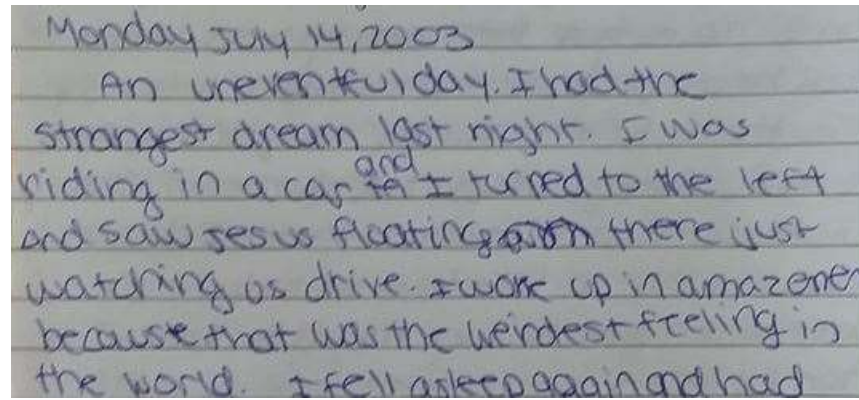 Monday July 14, 2003
An uneventful day. I had the
strangest dream last night. I was
riding in a car and I turned to the left
and saw Jesus floating there just
watching us drive. I woke up in amazene
because that was the weirdest feeling in
the world. I fell asleep again and had